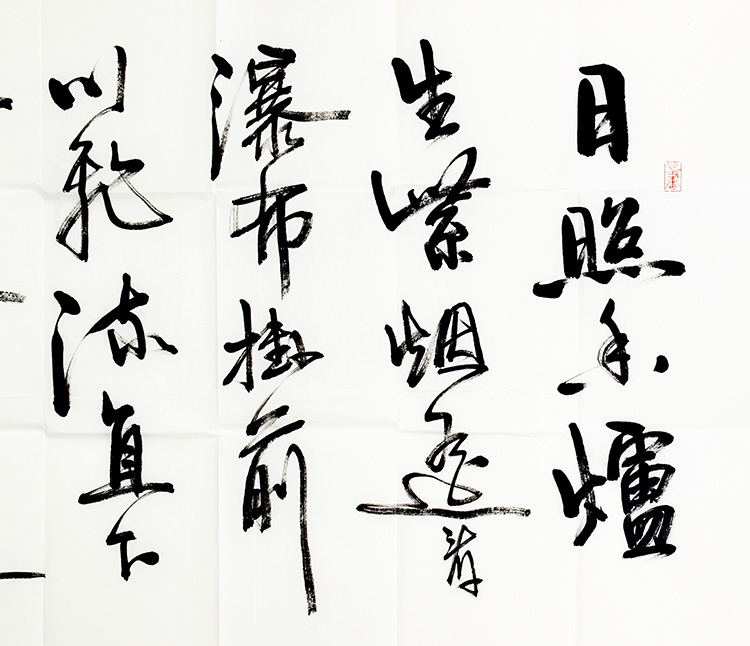 日照香爐
生紫烟遙看
瀑布掛前
川飛流直下